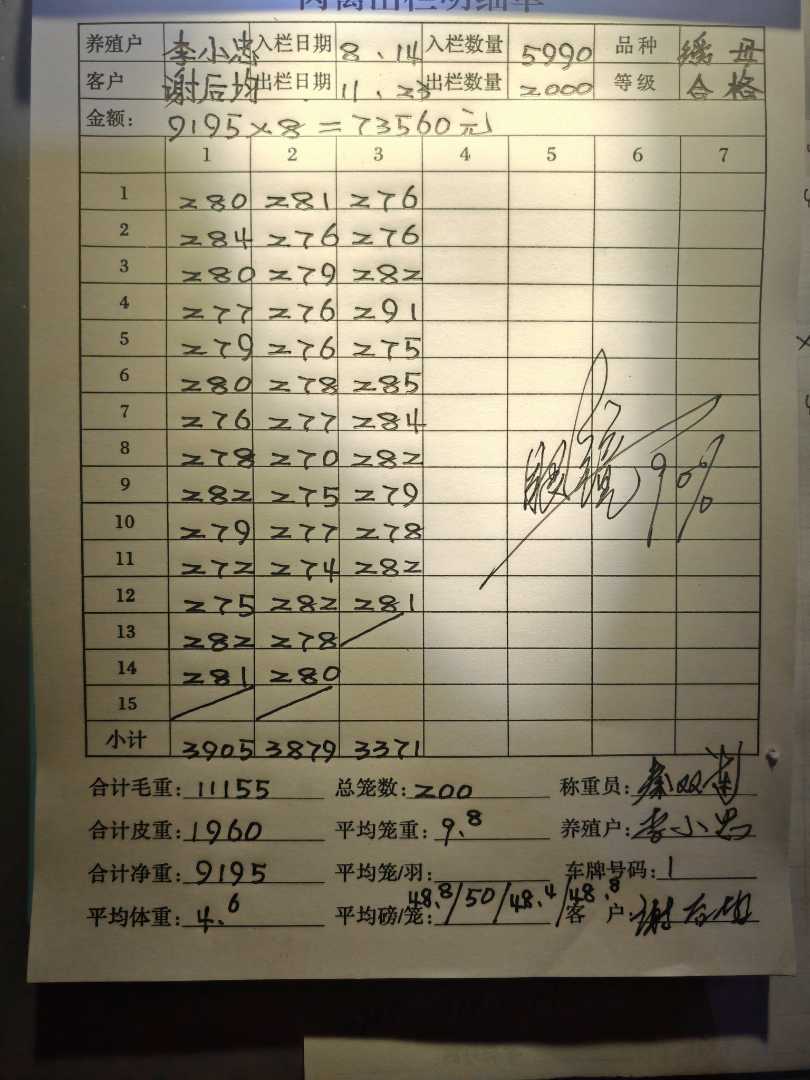 肉禽出栏明细单
养殖户 李小忠 入栏日期 8.14 入栏数量 5990 品种
客户 谢后均 出栏日期 11.23 出栏数量 2000 等级 合格
金额: 9195×8=73560元
1 2 3 4 5 6 7
1 280 281 276
2 284 276 276
3 280 279 282
4 277 276 291
5 279 276 275
6 280 278 285
7 276 277 284
8 278 270 282
9 282 275 279
10 279 277 278
11 272 274 282
12 275 282 281
13 282 278
14 281 280
15
90%
小计 3905 3879 3371
合计毛重: 11155 总笼数: 200 称重员:
合计皮重: 1960 平均笼重: 9.8 养殖户: 李小忠
合计净重: 9195 平均笼/羽: 车牌号码: 1
平均体重: 4.6 平均磅/笼: 48.8/50/48.4/48.8 客 户: 谢后均